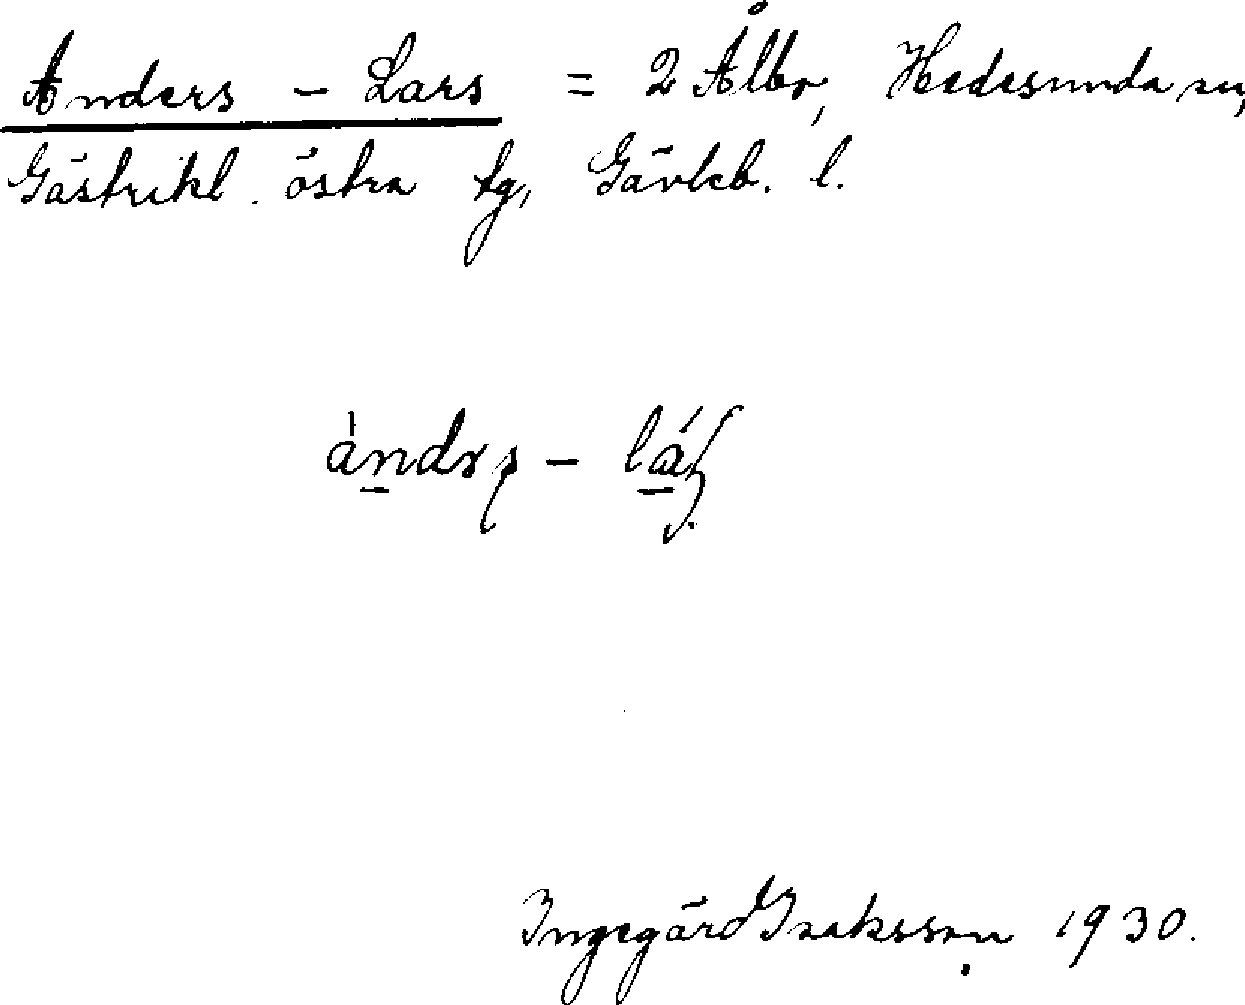 Anders - Lars = 2 Ålbo, Hedesunda sn,
Gästrikl. östra tg, Gävleb. l.
Ingegärd Isaksson 1930.